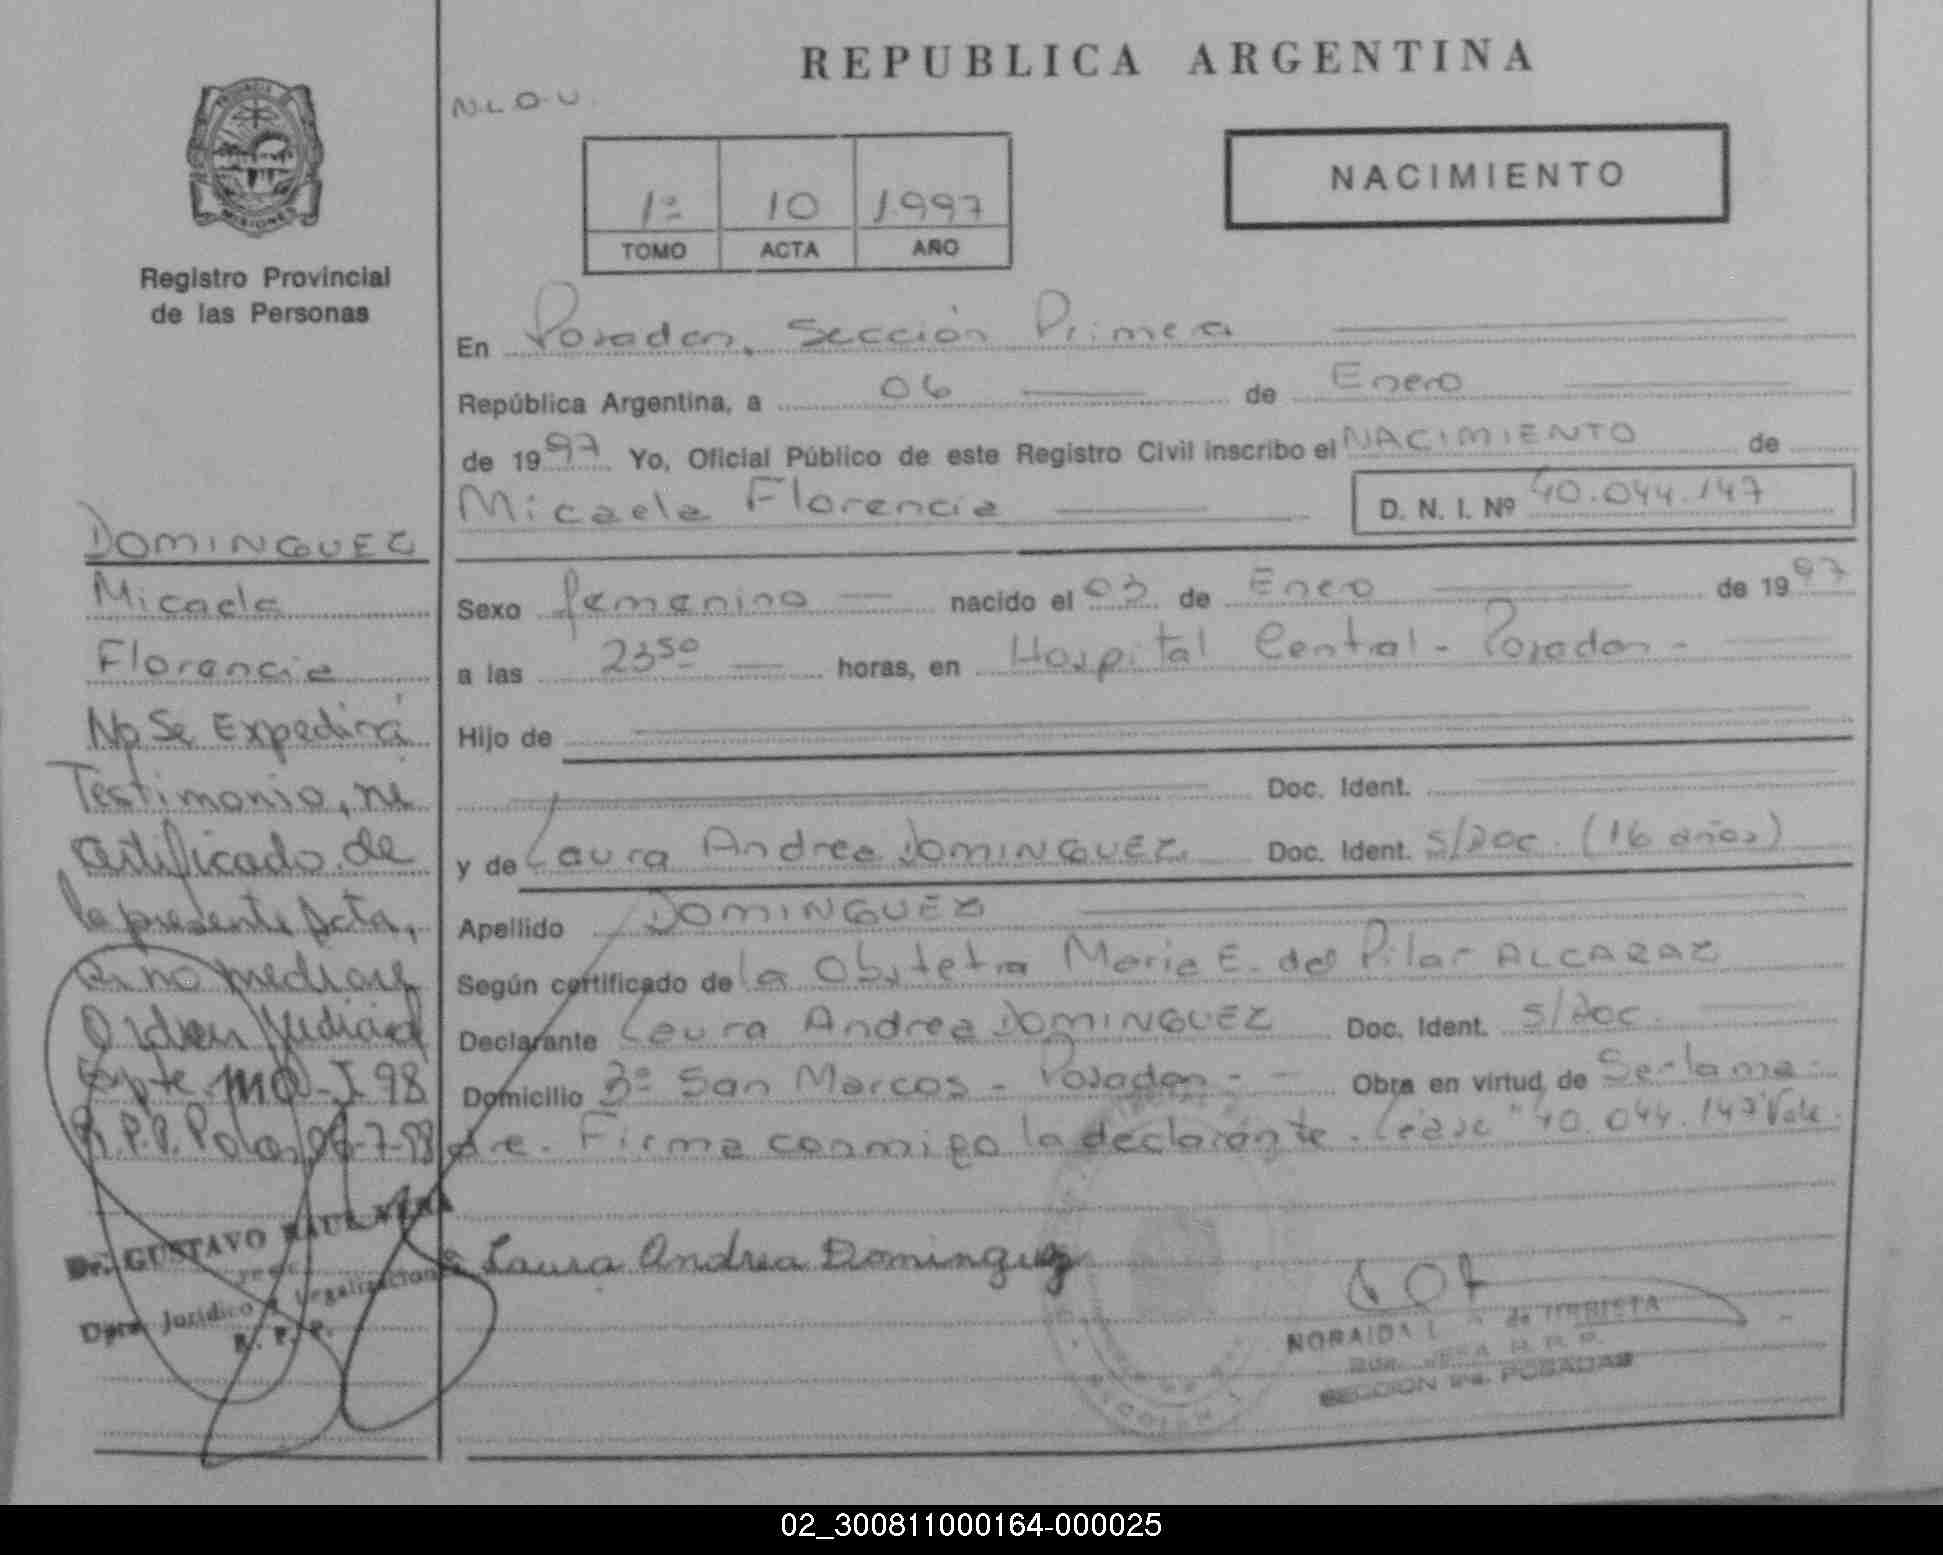 REPUBLICA ARGENTINA
N.L.O.U.
NACIMIENTO
1º 10 1997
TOMO ACTA AÑO
PROVINCIA DE MISIONES
Registro Provincial
de las Personas
En Posadas, Sección Primera
República Argentina, a 06 de Enero
de 1997 Yo, Oficial Público de este Registro Civil inscribo el NACIMIENTO de
Micaela Florencia D. N. I. Nº 40.044.147
Sexo femenino nacido el 03 de Enero de 1997
a las 23⁵⁰ horas, en Hospital Central - Posadas -
Hijo de
Doc. Ident.
y de Laura Andrea DOMINGUEZ Doc. Ident. s/doc. (16 años)
Apellido DOMINGUEZ
Según certificado de la Obstetra Maria E. del Pilar ALCARAZ
Declarante Laura Andrea DOMINGUEZ Doc. Ident. s/doc.
Domicilio Bº San Marcos - Posadas - - Obra en virtud de Ser la ma-
dre. Firma conmigo la declarante. Léase "40.044.147" Vale.
Laura Andrea Dominguez
NORAIDA de URRISTA
R. P.
SECCION 1ra. POSADAS
DOMINGUEZ
Micaela
Florencia
No Se Expedirá
Testimonio, ni
certificado de
la presente Acta,
si no mediare
Orden Judicial
Expte. -J-98
R.P.P. -7-98
Dr. GUSTAVO RAUL
Jefe
Dpto. Jurídico y Legalizaciones
R. P. P.
02_300811000164-000025